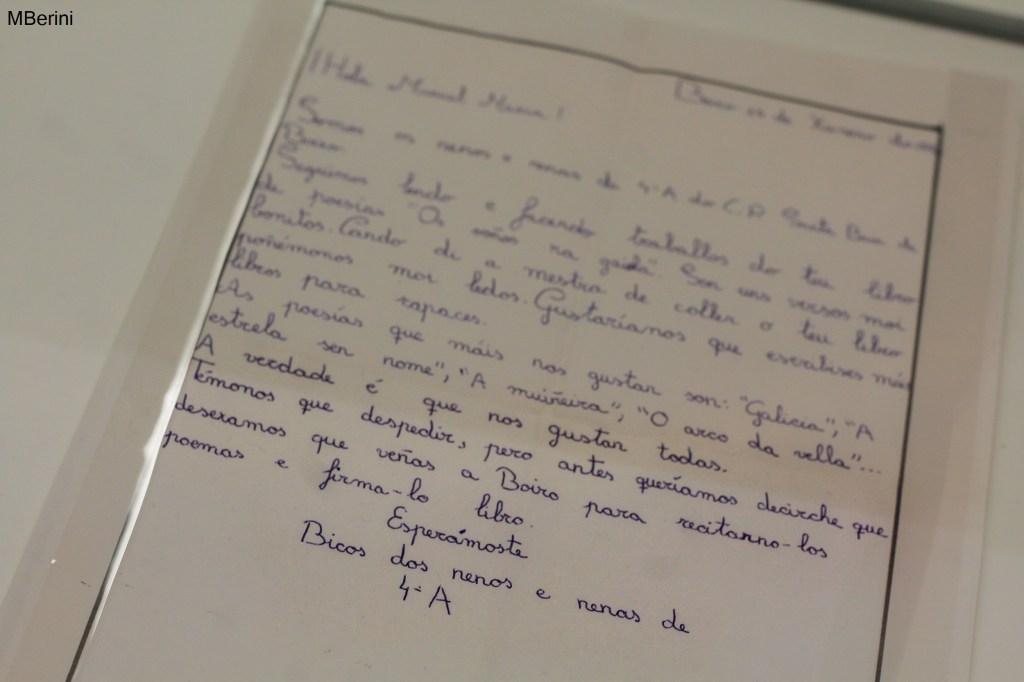 MBerini
Boiro
¡Hola Manuel María!
Somos os nenos e nenas de 4º A do C.P. Santa Baia de
Boiro.
Seguimos lendo e facendo traballos do teu libro
de poesías "Os soños na gaiola". Son uns versos moi
bonitos. Cando di a mestra de coller o teu libro
poñémonos moi ledos. Gustaríanos que escribises máis
libros para rapaces.
As poesías que máis nos gustan son: "Galicia", "A
estrela sen nome", "A muiñeira", "O arco da vella"...
A verdade é que nos gustan todas.
Témonos que despedir, pero antes queríamos decirche que
desexamos que veñas a Boiro para recitarno-los
poemas e firma-lo libro.
Esperámoste
Bicos dos nenos e nenas de
4º A